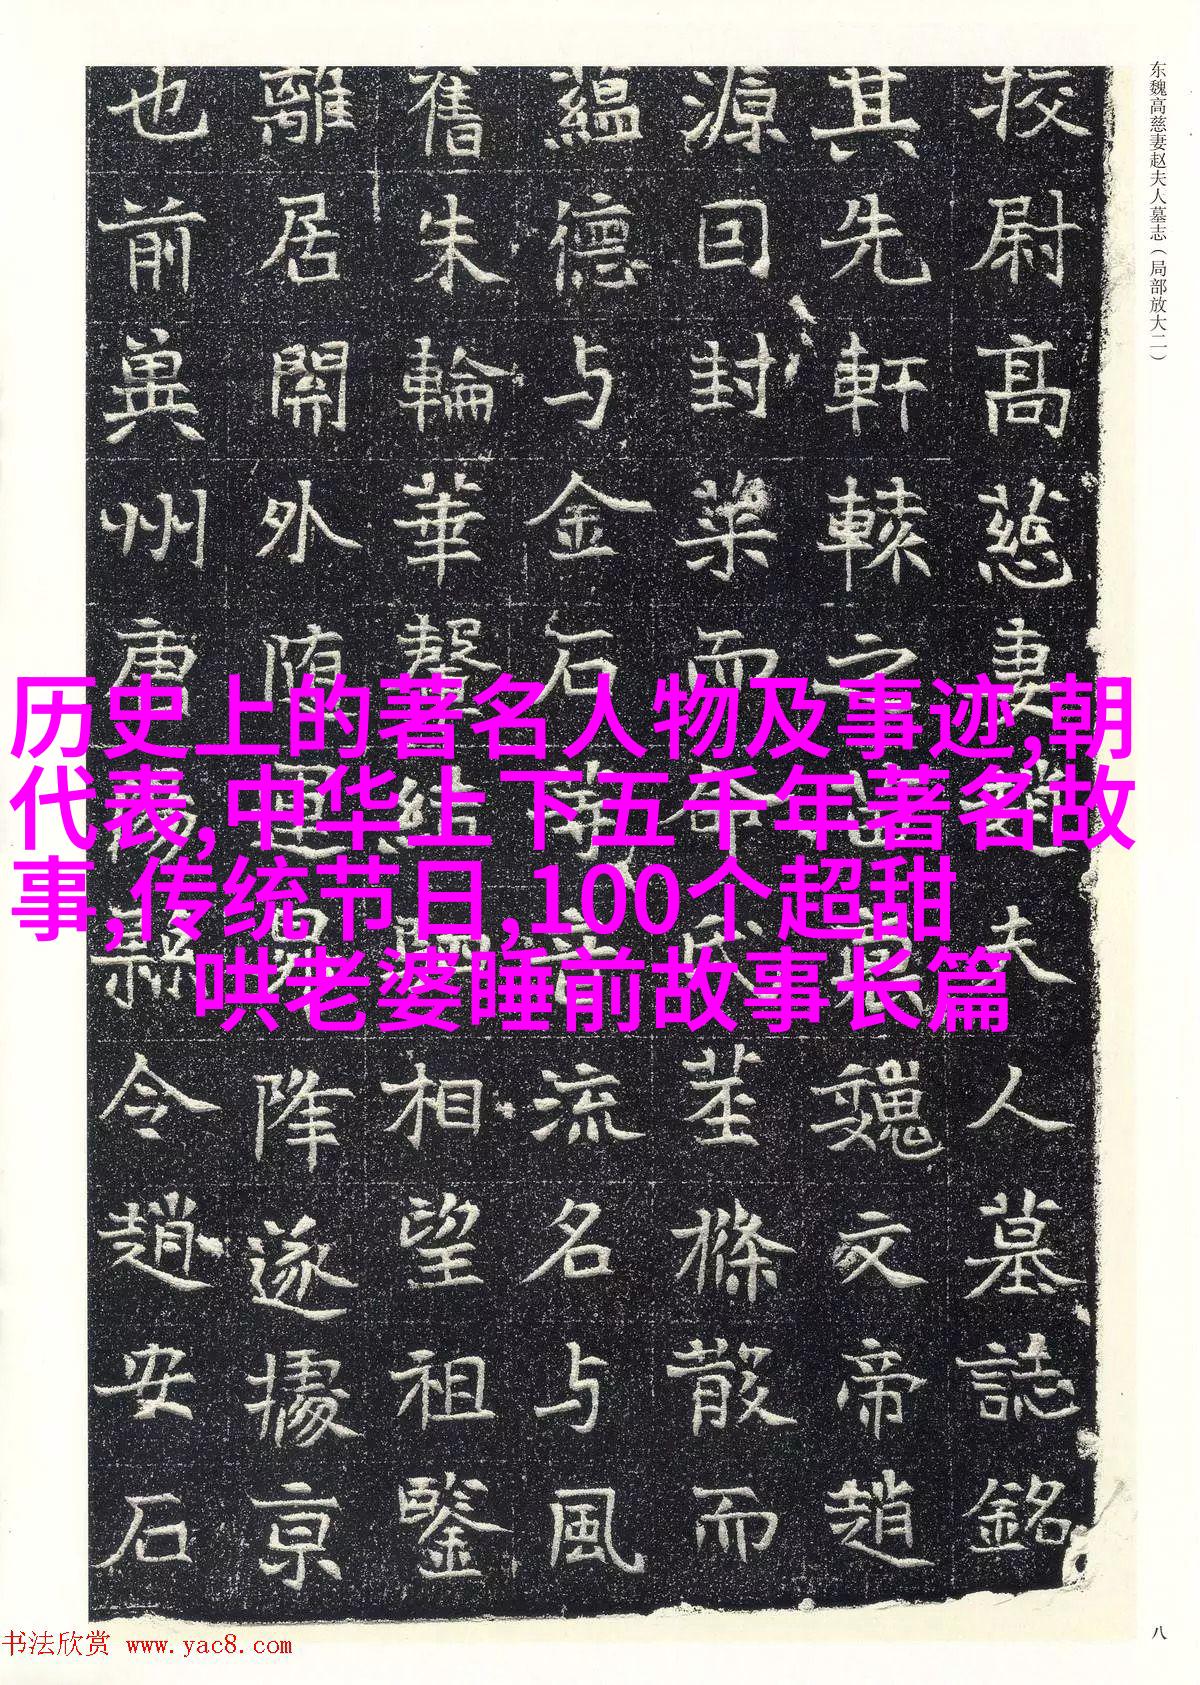 东魏高慈妻赵夫人墓志（局部放大二）
挍尉高慈妻趙夫人墓誌銘
其先軒轅之魏文帝趙
源曰封而命氏茎條散而
蘊德与金石音流名与風
舊朱輪華結駟相望祖鑒
離居關外随運降遂據京
也前冀州唐陽縣令趙安石
历史上的著名人物及事迹,朝
代表,中华上下五千年著名故
事,传统节日,100个超甜
哄老婆睡前故事长篇
八
书法欣赏 www.yac8.com